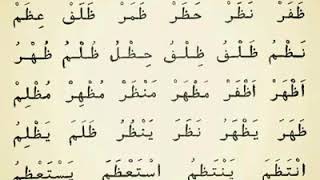 ظَفَرْ نَظَرْ حَظَرْ ظَمَرْ ظَلَقْ عِظَمْ
نَظْمُ ظَلْقُ ظِلْقُ حِظْلُ ظُلْمُ ظُهْرُ
اَظْهَرْ اَظْفَرْ مَظْهَرْ مَنْظَرْ مُظْهِرْ مُظْلِمْ
ظَهَرَ يَظْهَرُ نَظَرَ يَنْظُرُ ظَلَمَ يَظْلِمُ
اِنْتَظَمَ يَنْتَظِمُ اِسْتَعْظَمَ يَسْتَعْظِمُ